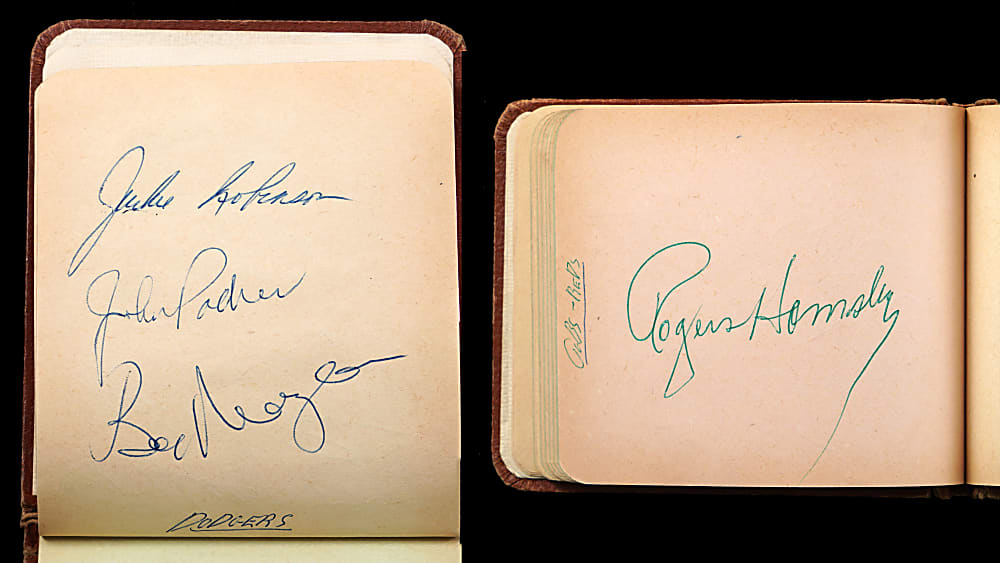 Jackie Robinson
John Podres
Russ Meyer
DODGERS
CUBS - REDS
Rogers Hornsby